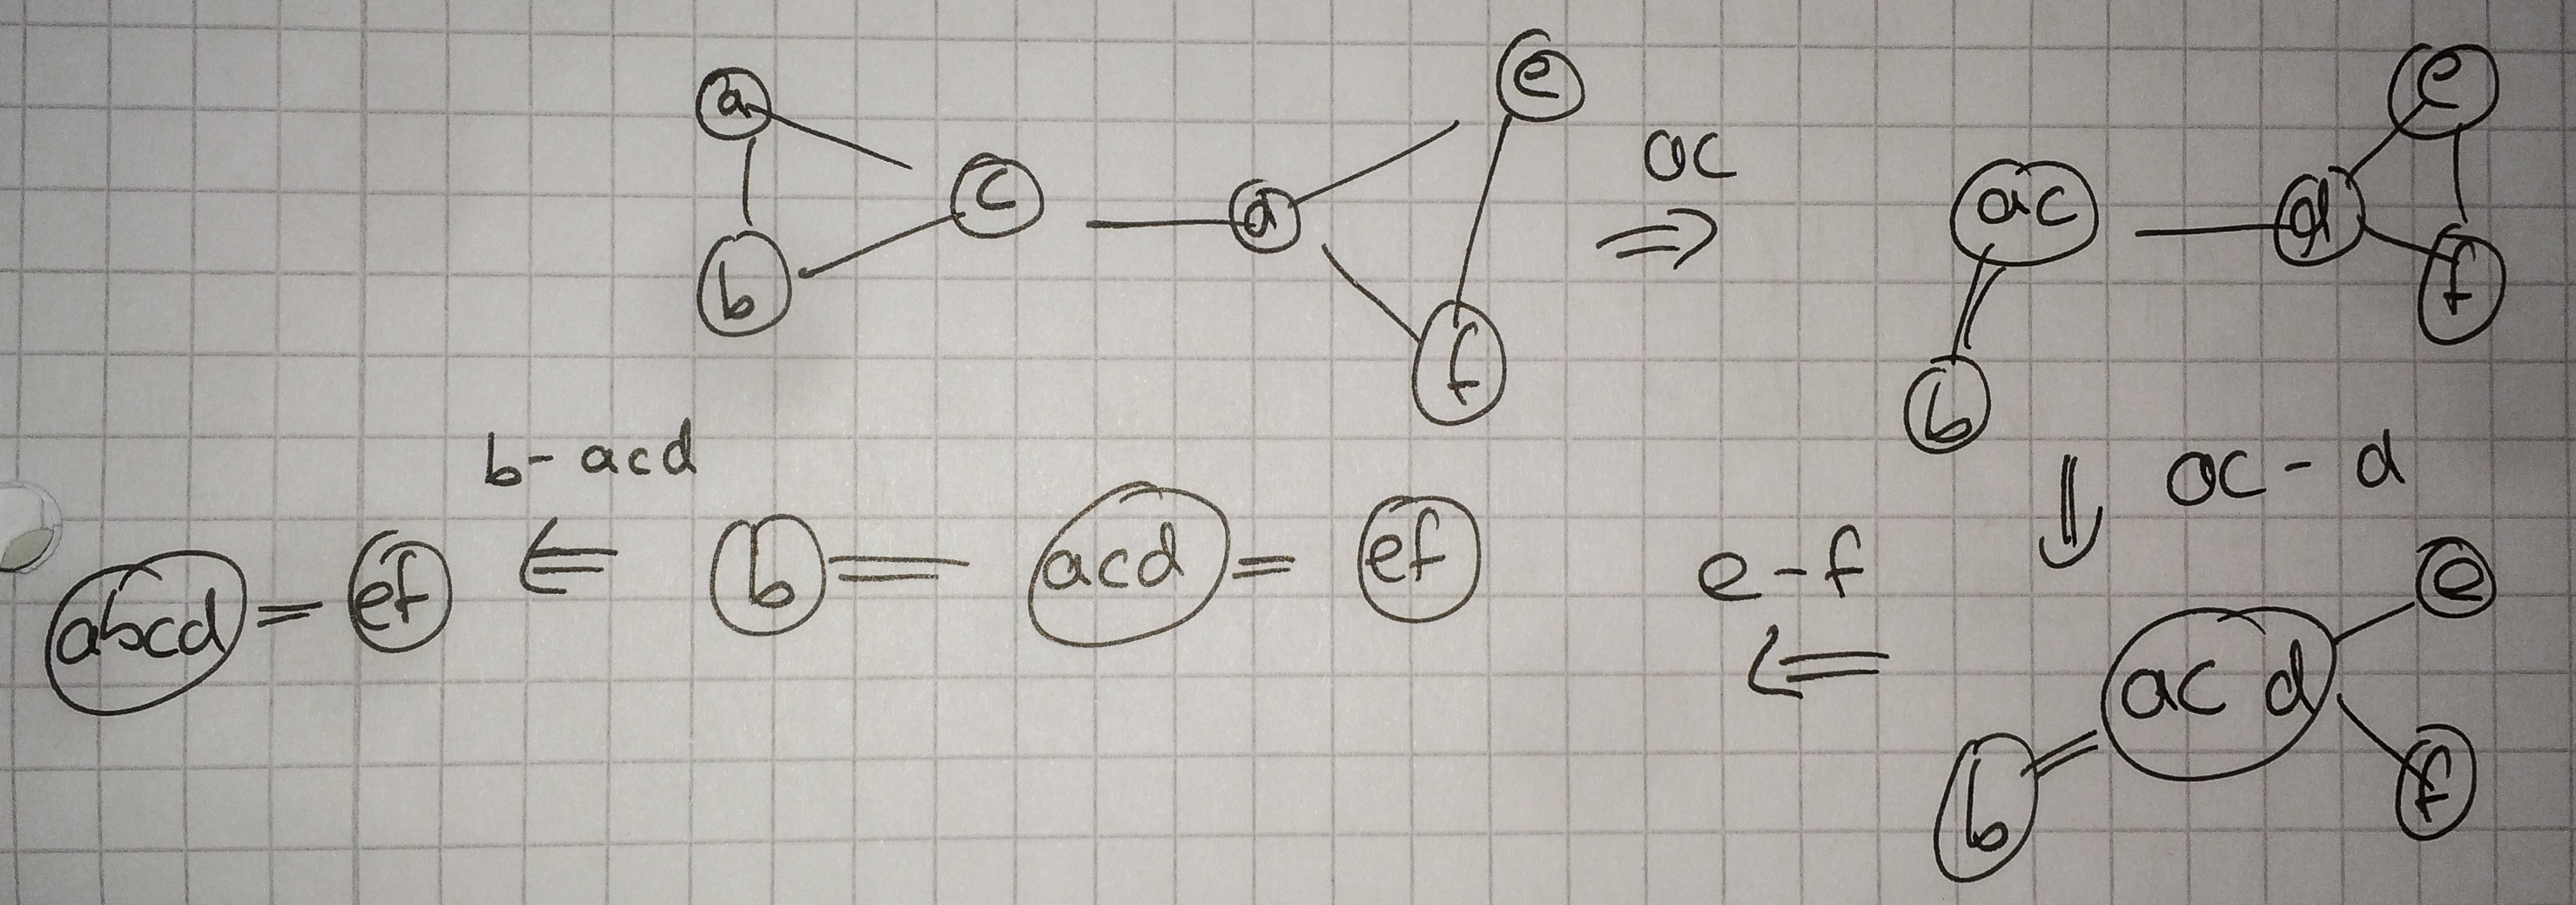 a
b
c
d
e
f
ac
ac
b
d
e
f
ac - d
acd
b
e
f
e - f
b = acd = ef
b - acd
abcd = ef